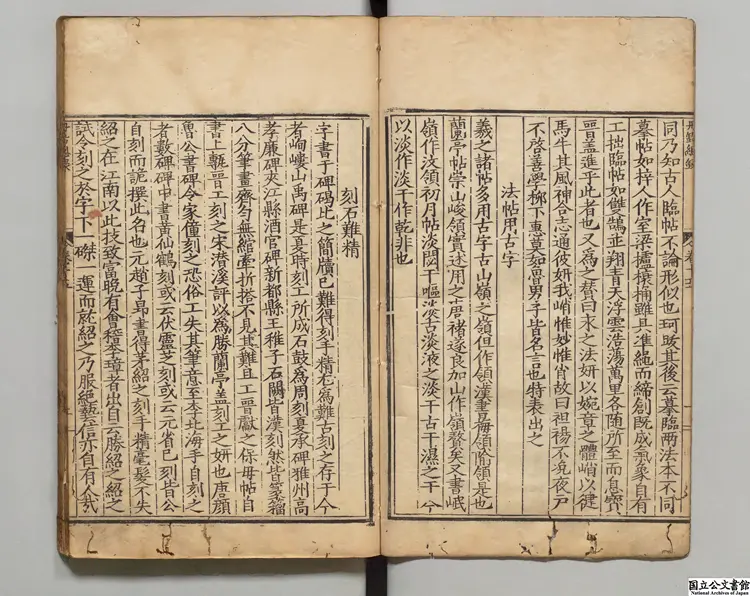 同乃知古人臨帖不論形似也珂跋其後云摹臨兩法本不同
摹帖如梓人作室梁櫨榱桷雖具準繩而締創既成氣象自有
工拙臨帖如雙鵠並翔青天浮雲浩蕩萬里各隨所至而息寶
晉蓋進乎此者也又為之贊曰末之法妍以婉章之體峭以健
馬牛其風神合志通彼妍我峭惟妙惟肖故曰袒裼不浼夜戶
不啓善學柳下惠莫如魯男子皆名言也特表出之
法帖用古字
羲之諸帖多用古字古山嶺之嶺但作領漢書梅領隃領是也
蘭亭帖崇山峻領實述用之唐褚遂良加山作嶺贅矣又書岷
嶺作汶領初月帖淡悶干嘔淡古淡液之淡干古干濕之干今
以淡作淡干作乾非也
刻石難精
字書于碑碣比之簡牘已難得刻手精尤為難古刻之存于今
者岣嶁山禹碑是夏時刻工所成石鼓為周刻夏承碑雍州高
孝廉碑夾江縣酒官碑新都縣王稚子石闕皆漢刻然皆篆籀
八分筆畫齊勻無縮牽折搭不見其難且工晉獻之保母帖自
書上甎晉工刻之宋潛溪評以為勝蘭亭盖刻工之妍也唐顔
魯公書碑令家僮刻之恐俗工失其筆意至李北海手自刻之
者數碑碑中書黃仙鶴刻或云伏靈芝刻或云元省已刻皆公
自刻而詭撰此名也元趙子昂書得茅紹之刻手精毫髮不失
紹之在江南以此技致富晚有會稽李璋者出自云勝紹之紹之
試令刻之於字下一磔一運而就紹之乃服絕藝信亦自有人哉
国立公文書館
National Archives of Japan